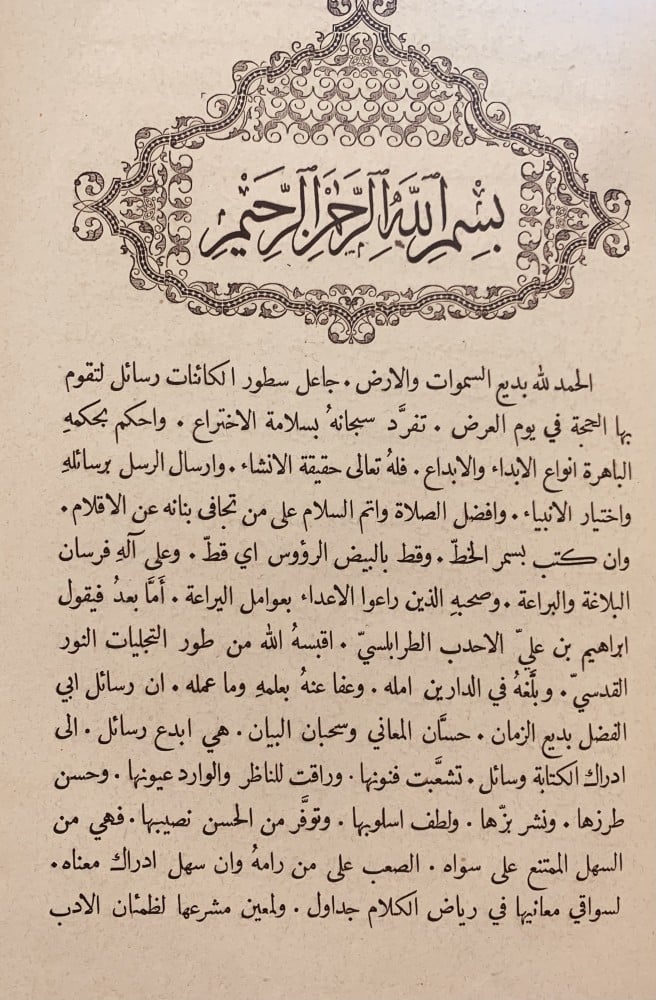 بِسْمِ اللَّهِ الرَّحْمَٰنِ الرَّحِيمِ
الحمد لله بديع السموات والارض . جاعل سطور الكائنات رسائل لتقوم
بها الحجة في يوم العرض . تفرَّد سبحانهُ بسلامة الاختراع . واحكم بحكمهِ
الباهرة انواع الابداء والابداع . فلهُ تعالى حقيقة الانشاء . وارسال الرسل برسائلهِ
واختيار الانبياء . وافضل الصلاة واتم السلام على من تجافى بنانه عن الاقلام .
وان كتب بسمر الخطّ . وقط بالبيض الرؤوس اي قطّ . وعلى آلهِ فرسان
البلاغة والبراعة . وصحبهِ الذين راعوا الاعداء بعوامل اليراعة . أمَّا بعدُ فيقول
ابراهيم بن عليّ الاحدب الطرابلسيّ . اقبسهُ الله من طور التجليات النور
القدسيّ . وبلَّغهُ في الدارين امله . وعفا عنهُ بعلمهِ وما عمله . ان رسائل ابي
الفضل بديع الزمان . حسَّان المعاني وسحبان البيان . هي ابدع رسائل . الى
ادراك الكتابة وسائل . تشعَّبت فنونها . وراقت للناظر والوارد عيونها . وحسن
طرزها . ونشر بزّها . ولطف اسلوبها . وتوفَّر من الحسن نصيبها . فهي من
السهل الممتنع على سواه . الصعب على من رامهُ وان سهل ادراك معناه .
لسواقي معانيها في رياض الكلام جداول . ولمعين مشرعها لظمئان الادب